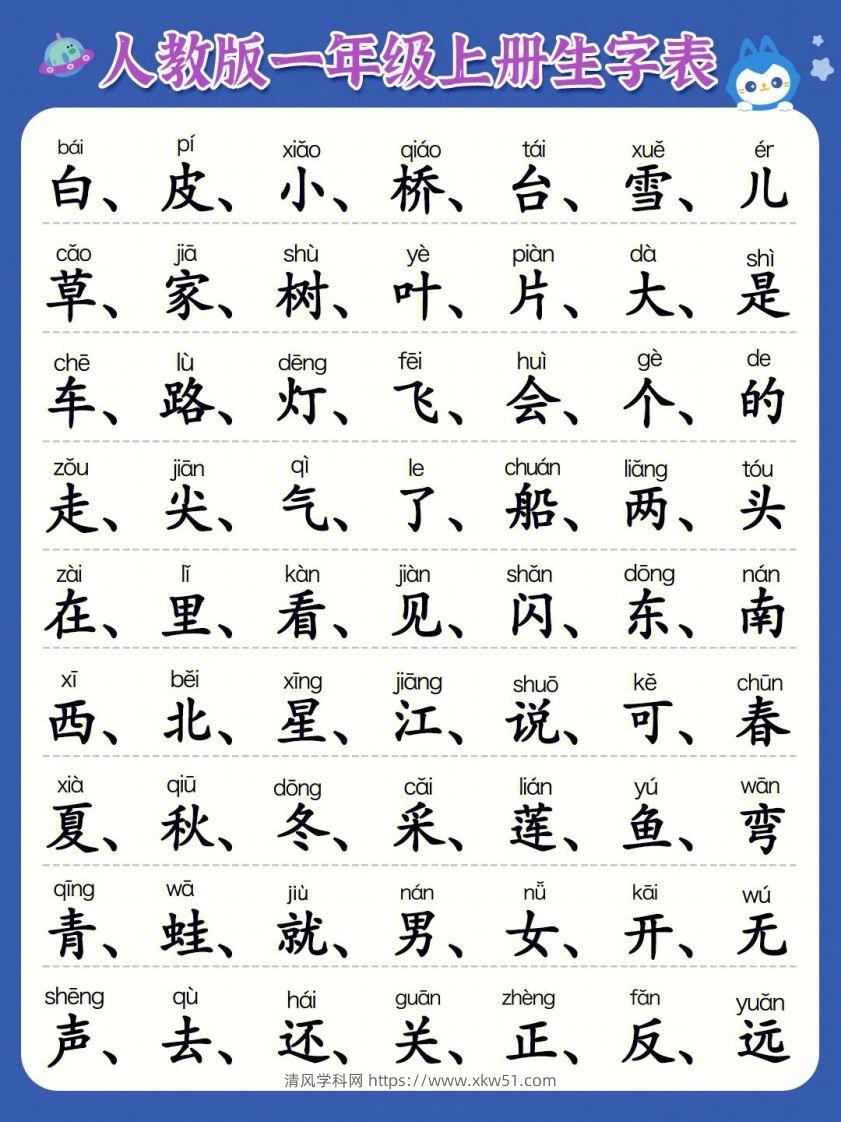 人教版一年级上册生字表
bái pí xiǎo qiáo tái xuě ér
白、皮、小、桥、台、雪、儿
cǎo jiā shù yè piàn dà shì
草、家、树、叶、片、大、是
chē lù dēng fēi huì gè de
车、路、灯、飞、会、个、的
zǒu jiān qì le chuán liǎng tóu
走、尖、气、了、船、两、头
zài lǐ kàn jiàn shǎn dōng nán
在、里、看、见、闪、东、南
xī běi xīng jiāng shuō kě chūn
西、北、星、江、说、可、春
xià qiū dōng cǎi lián yú wān
夏、秋、冬、采、莲、鱼、弯
qīng wā jiù nán nǚ kāi wú
青、蛙、就、男、女、开、无
shēng qù hái guān zhèng fǎn yuǎn
声、去、还、关、正、反、远
清风学科网 https://www.xkw51.com